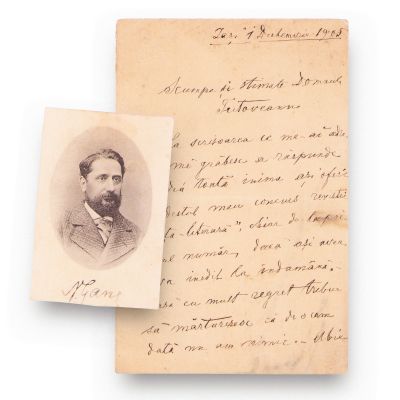 Iași, 1 Decembrie 1908
Scumpe și stimate Domnule
La scrisoarea ce me-ai
mĕ grăbesc a rĕspunde
tótă inima ași oferi
modestul meu concurs revistei
literară", chiar de la
număr, dacă ași avea
inedit la îndămână.
cu mult regret trebue
să mărturisesc că de o cam
dată nu am nimic.
N. Gane